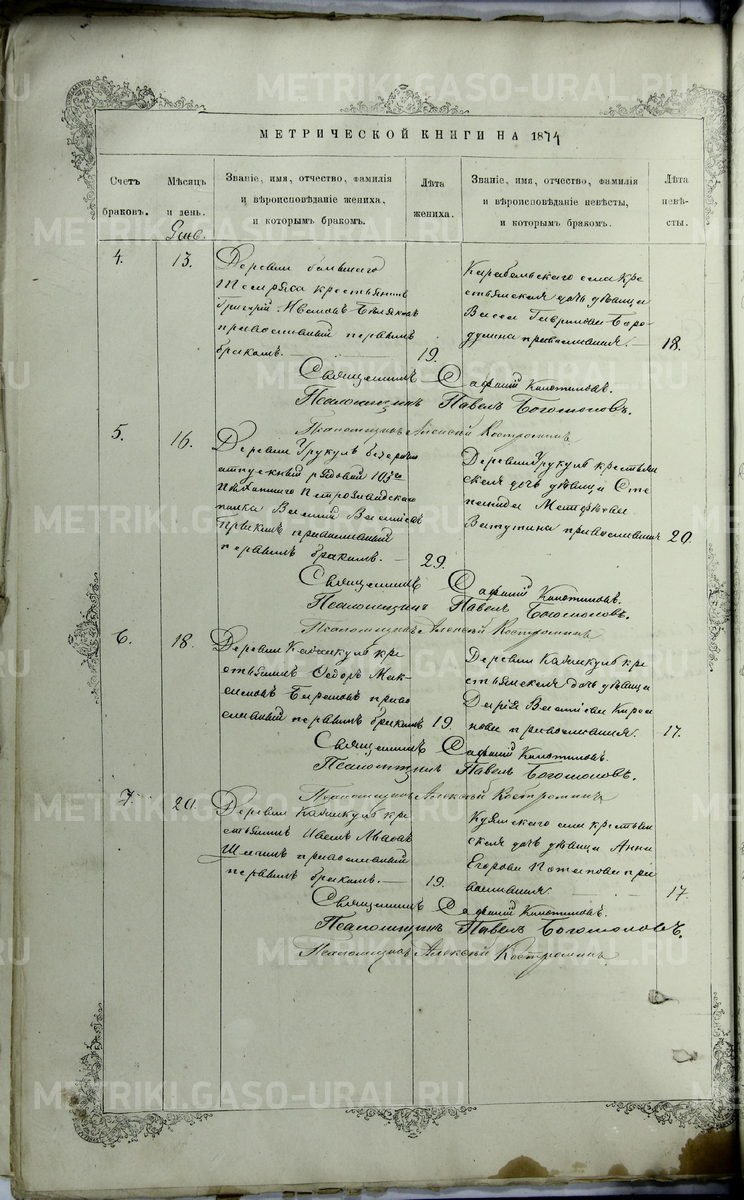 МЕТРИЧЕСКОЙ КНИГИ НА 1874
Счетъ браковъ.
Мѣсяцъ и день.
Званіе, имя, отчество, фамилія и вѣроисповѣданіе жениха, и которымъ бракомъ.
Лѣта жениха.
Званіе, имя, отчество, фамилія и вѣроисповѣданіе невѣсты, и которымъ бракомъ.
Лѣта невѣсты.
Янв.
4.
13.
Деревни большаго
крестьянинъ
Григорій Ивановъ Бѣляковъ
православный первымъ
бракомъ.
19.
села кре
стьянская дочь дѣвица
Васса Гаврилова Боро
дулина православная.
18.
Священникъ
Псаломщикъ Павелъ Богомоловъ.
Псаломщикъ Алексѣй Костроминъ
5.
16.
Деревни Урукуль безсрочно
отпускный рядовой 103го
пѣхотнаго Петрозаводскаго
полка Василій Васильевъ
православный
первымъ бракомъ.
29.
Деревни Урукуль крестьян
ская дочь дѣвица Сте
панида Матфѣева
Ватутина православная
20.
Священникъ
Псаломщикъ Павелъ Богомоловъ.
Псаломщикъ Алексѣй Костроминъ
6.
18.
Деревни кре
стьянинъ Ѳедоръ Мак
симовъ право
славный первымъ бракомъ
19.
Деревни кре
стьянская дочь дѣвица
Дарія Васильева
православная.
17.
Священникъ
Псаломщикъ Павелъ Богомоловъ.
Псаломщикъ Алексѣй Костроминъ
7.
20.
Деревни кре
стьянинъ Иванъ
православный
первымъ бракомъ.
19.
села крестьян
ская дочь дѣвица Анна
Егорова Потапова пра
вославная.
17.
Священникъ
Псаломщикъ Павелъ Богомоловъ.
Псаломщикъ Алексѣй Костроминъ
METRIKI.GASO-URAL.RU